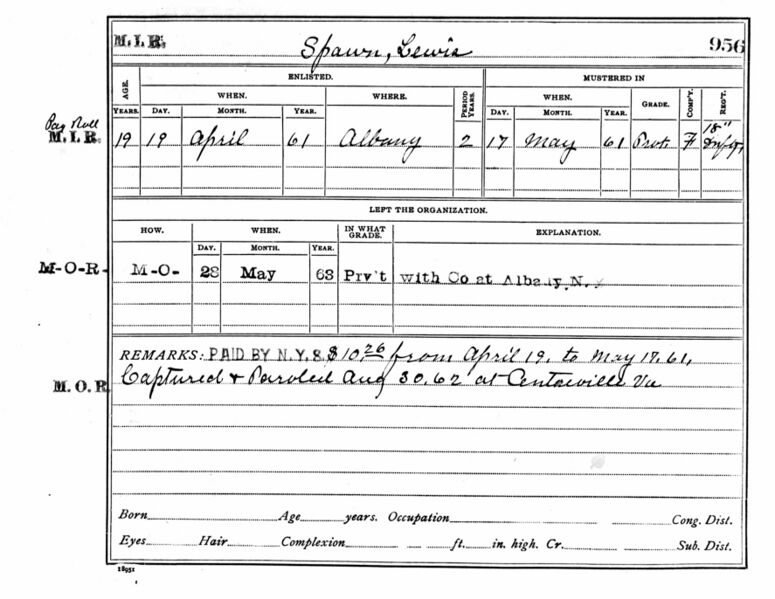 M.I.R. Spawn, Lewis 956
ENLISTED. MUSTERED IN
AGE. WHEN. WHERE. PERIOD YEARS. WHEN. GRADE. COMP'Y. REG'T.
YEARS. DAY. MONTH. YEAR. DAY. MONTH. YEAR.
Pay Roll 18"
M.I.R. 19 19 April 61 Albany 2 17 May 61 Pvt. F
LEFT THE ORGANIZATION.
HOW. WHEN. IN WHAT GRADE. EXPLANATION.
DAY. MONTH. YEAR.
M-O-R- M-O- 28 May 63 Prv't with Co at Albany, N.Y
REMARKS: PAID BY N.Y.S. $10.26 from April 19, to May 17, 61,
M.O.R. Captured & Paroled Aug 30, 62 at Centreville Va
Born Age years. Occupation Cong. Dist.
Eyes Hair Complexion ft. in. high. Cr. Sub. Dist.